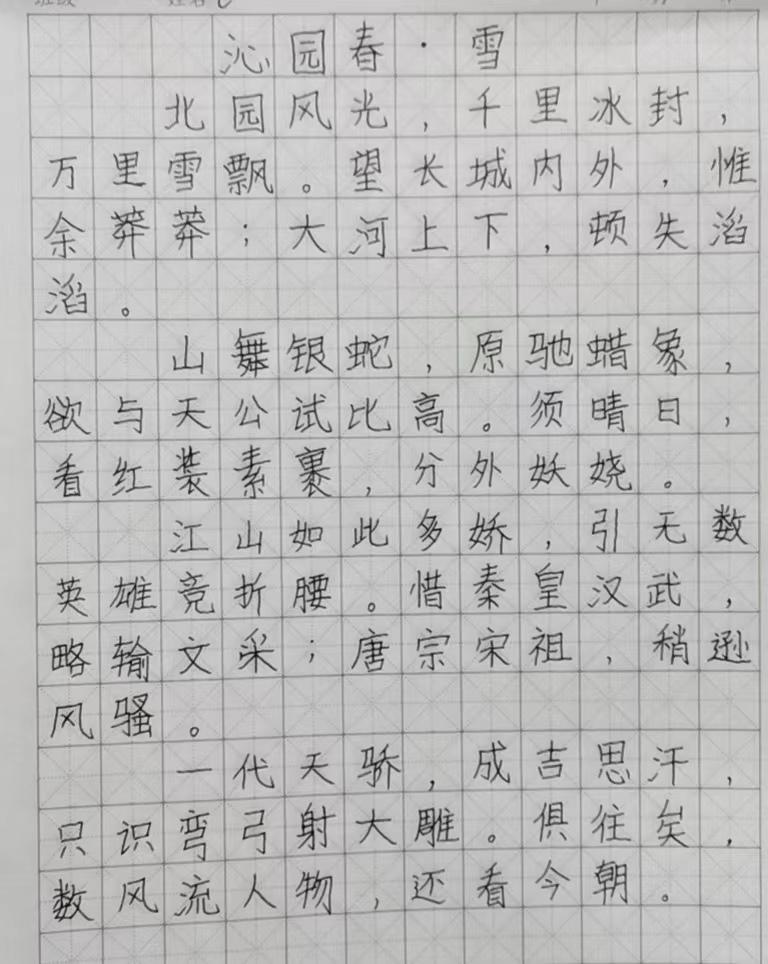 沁园春·雪
北园风光,千里冰封,
万里雪飘。望长城内外,惟
余莽莽;大河上下,顿失滔
滔。
山舞银蛇,原驰蜡象,
欲与天公试比高。须晴日,
看红装素裹,分外妖娆。
江山如此多娇,引无数
英雄竞折腰。惜秦皇汉武,
略输文采;唐宗宋祖,稍逊
风骚。
一代天骄,成吉思汗,
只识弯弓射大雕。俱往矣,
数风流人物,还看今朝。